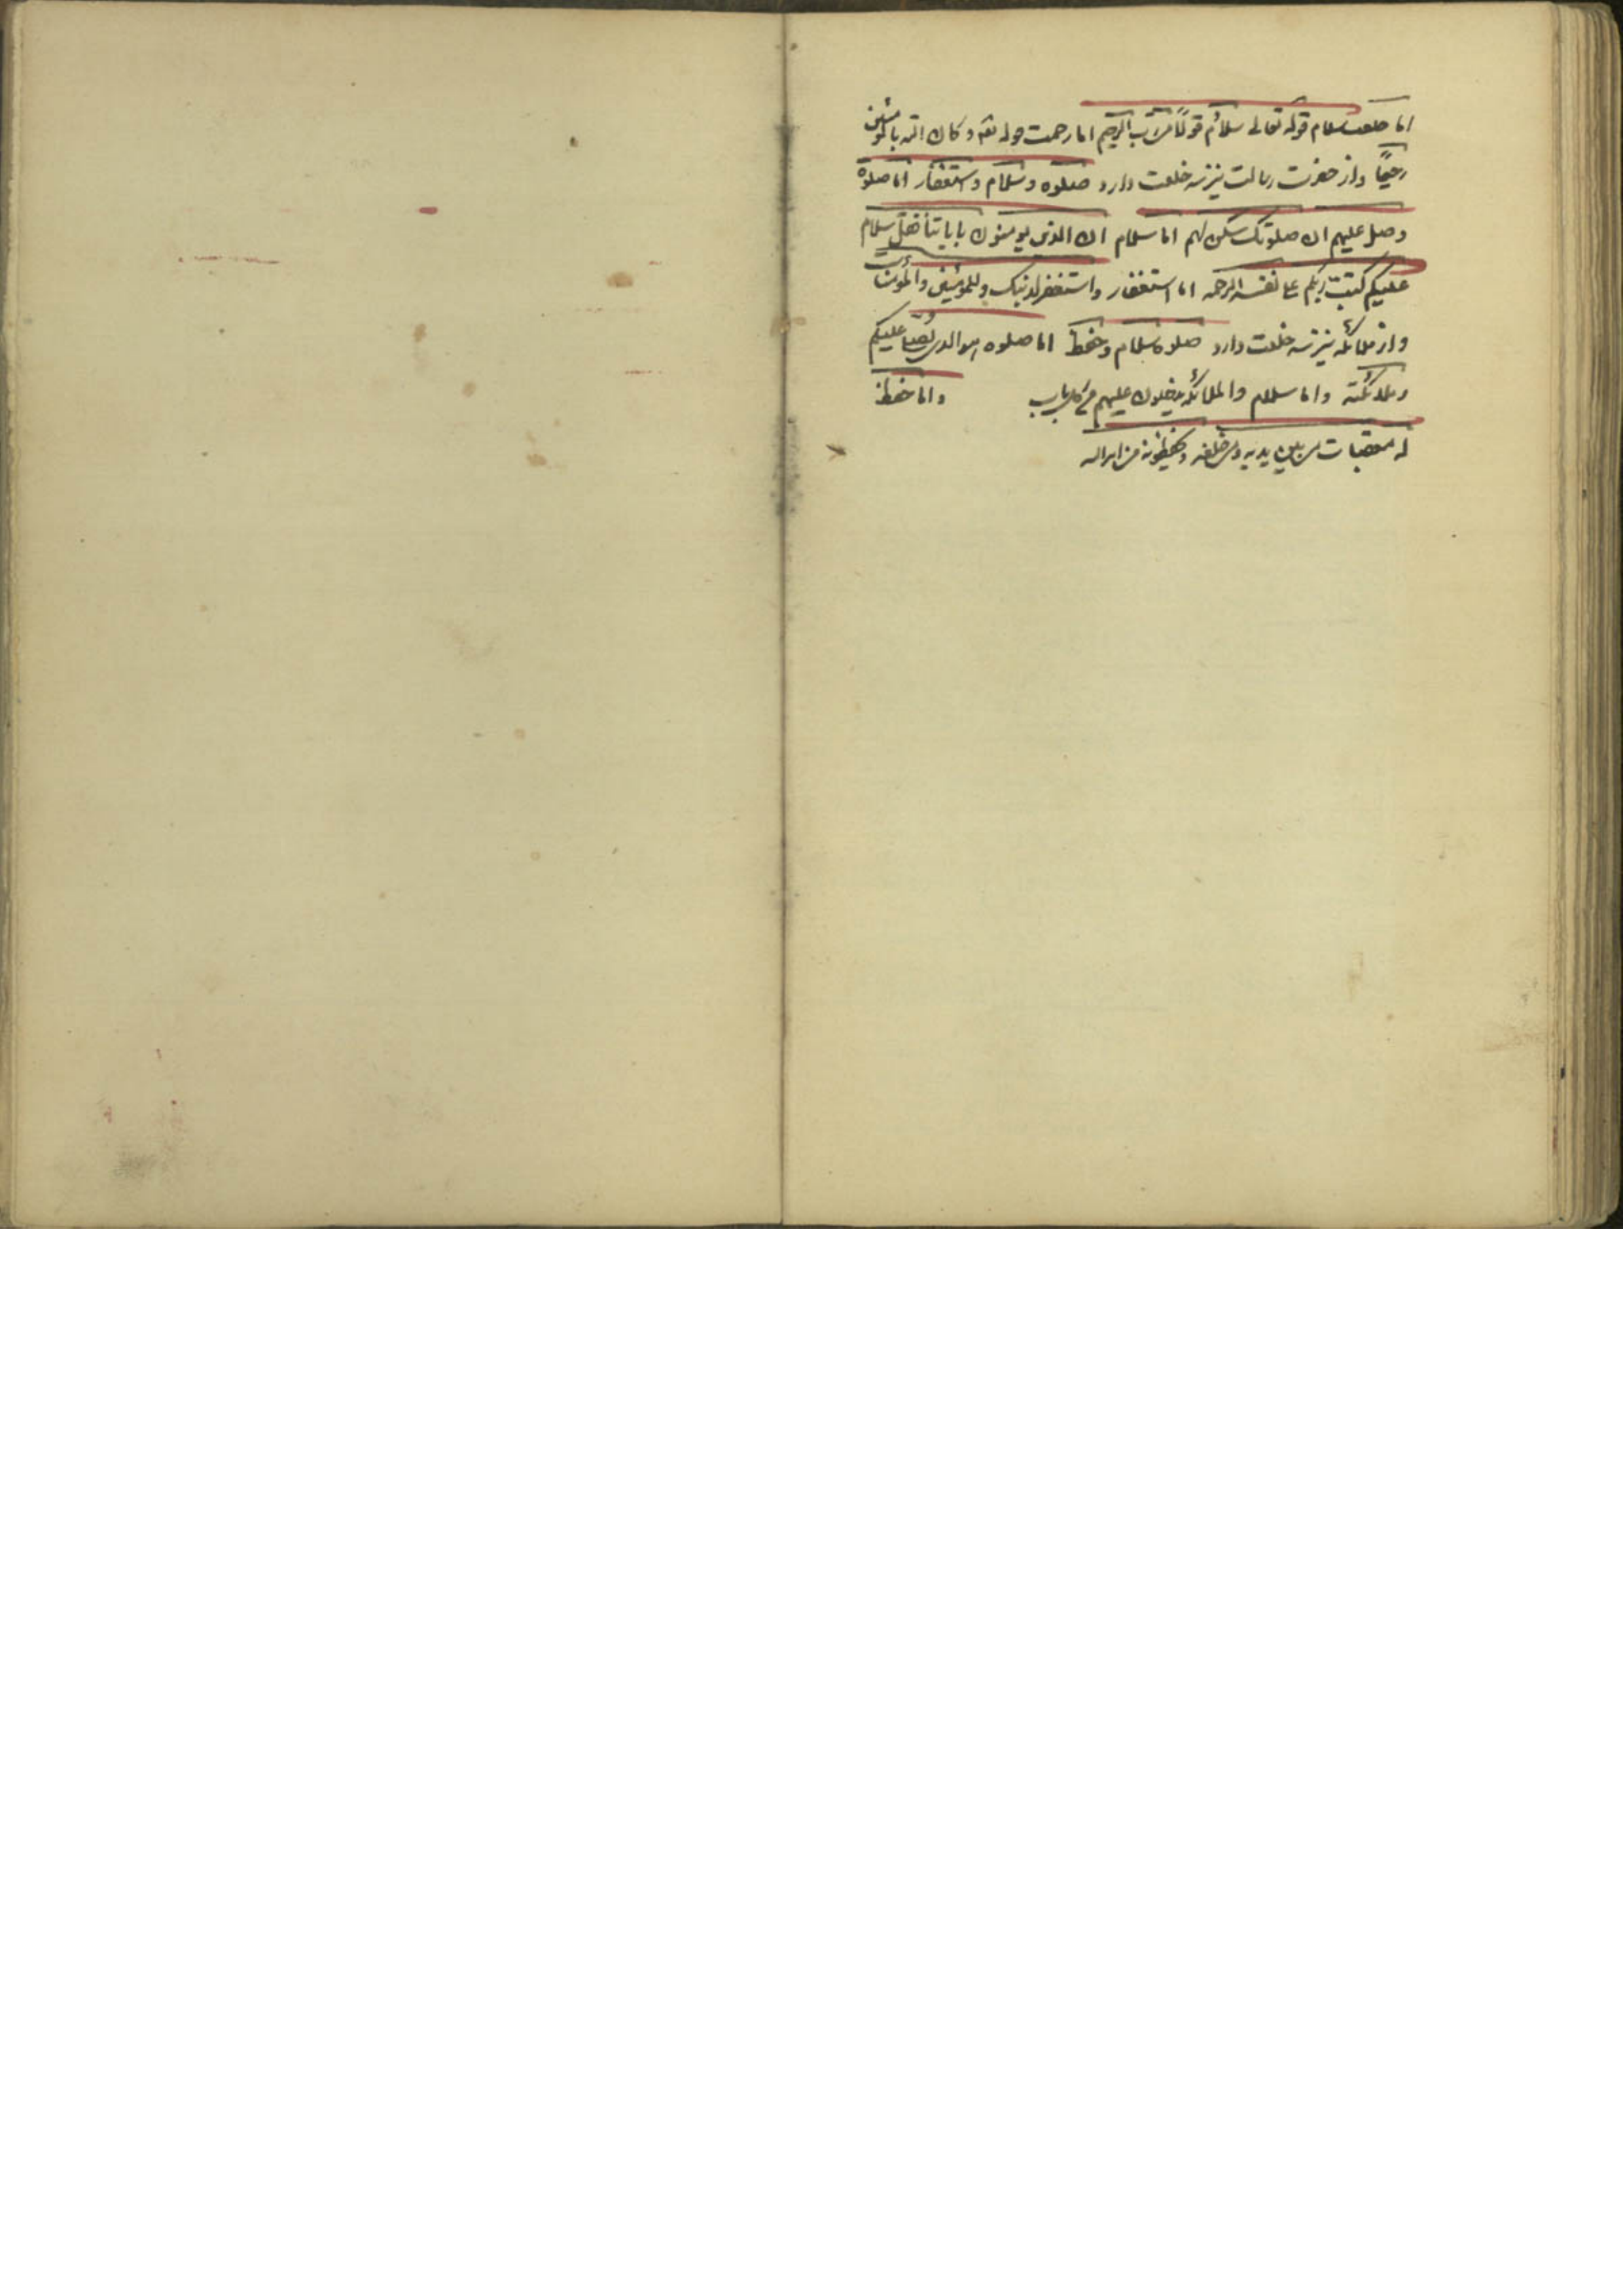 اما خلعت سلام قوله تعالی سلامٌ قولاً من رب الرحیم اما رحمت قوله تعه و کان الله بالمؤمنین
رحیماً و از حضرت رسالت نیز سه خلعت دارد صلوه و سلام و استغفار اما صلوة
وصل علیهم ان صلوتک سکن لهم اما سلام ان الذین یومنون بایاتنا فقل سلام
علیکم کتب ربکم علی نفسه الرحمه اما استغفار واستغفر لذنبک وللمؤمنین والمؤمنات
و از ملائکه نیز سه خلعت دارد صلوه سلام و حفظ اما صلوه هو الذی یصلی علیکم
وملائکته و اما سلام والملائکه یدخلون علیهم من کل باب و اما حفظ
له معقبات من بین یدیه ومن خلفه و یحفظونه من امر الله